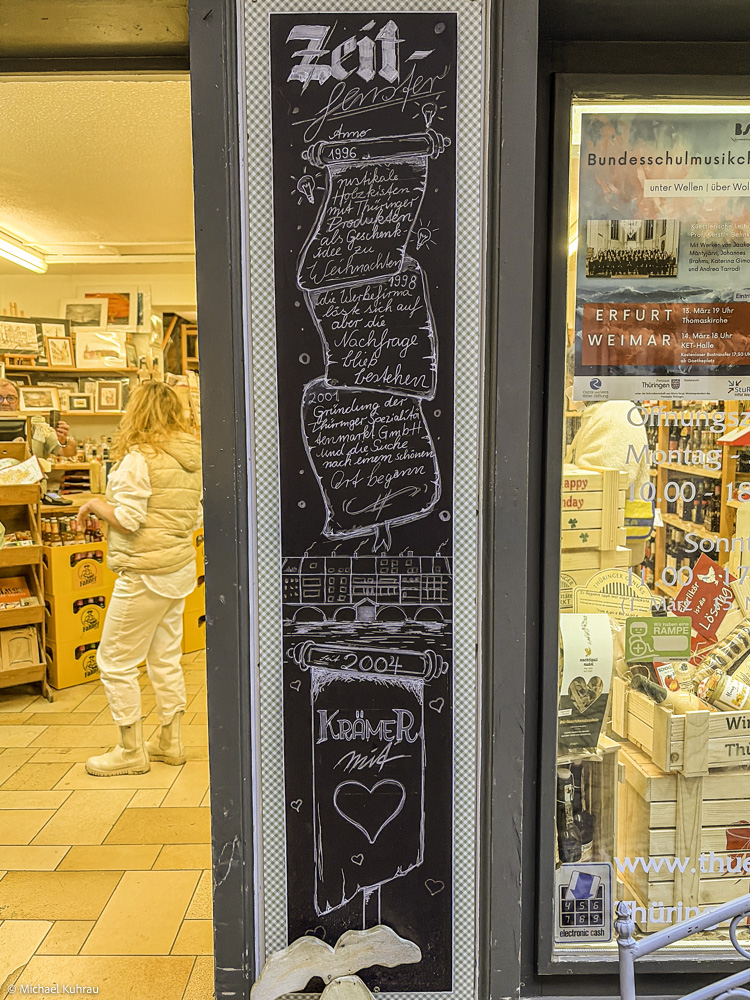 Zeit-
fenster
Anno
1996
rustikale
Holzkisten
mit Thüringer
Produkten
als Geschenk-
idee zu
Weihnachten
1998
die Werbefirma
löst sich auf
aber die
Nachfrage
blieb
bestehen
2001
Gründung der
Thüringer Spezialitä
tenmarkt GmbH
und die Suche
nach einem schönen
Ort begann
seit 2004
KRÄMER
mit
Bundesschulmusikch
unter Wellen | über Wol
Künstlerische Leitu
Mit Werken von Jaako
Mäntyjärvi, Johannes
Brahms, Katerina Gimo
und Andrea Tarrodi
Eintri
ERFURT
13. März 19 Uhr
Thomaskirche
WEIMAR
14. März 18 Uhr
KET-Halle
Thüringen
StuR
Öffnungsz
Montag -
10.00 - 18
Sonnt
11.00 - 17
Happy
Wir haben eine
RAMPE
Lösung
Wir
Thü
www.thue
Thürin
4 5 6
7 8 9
electronic cash
© Michael Kuhrau